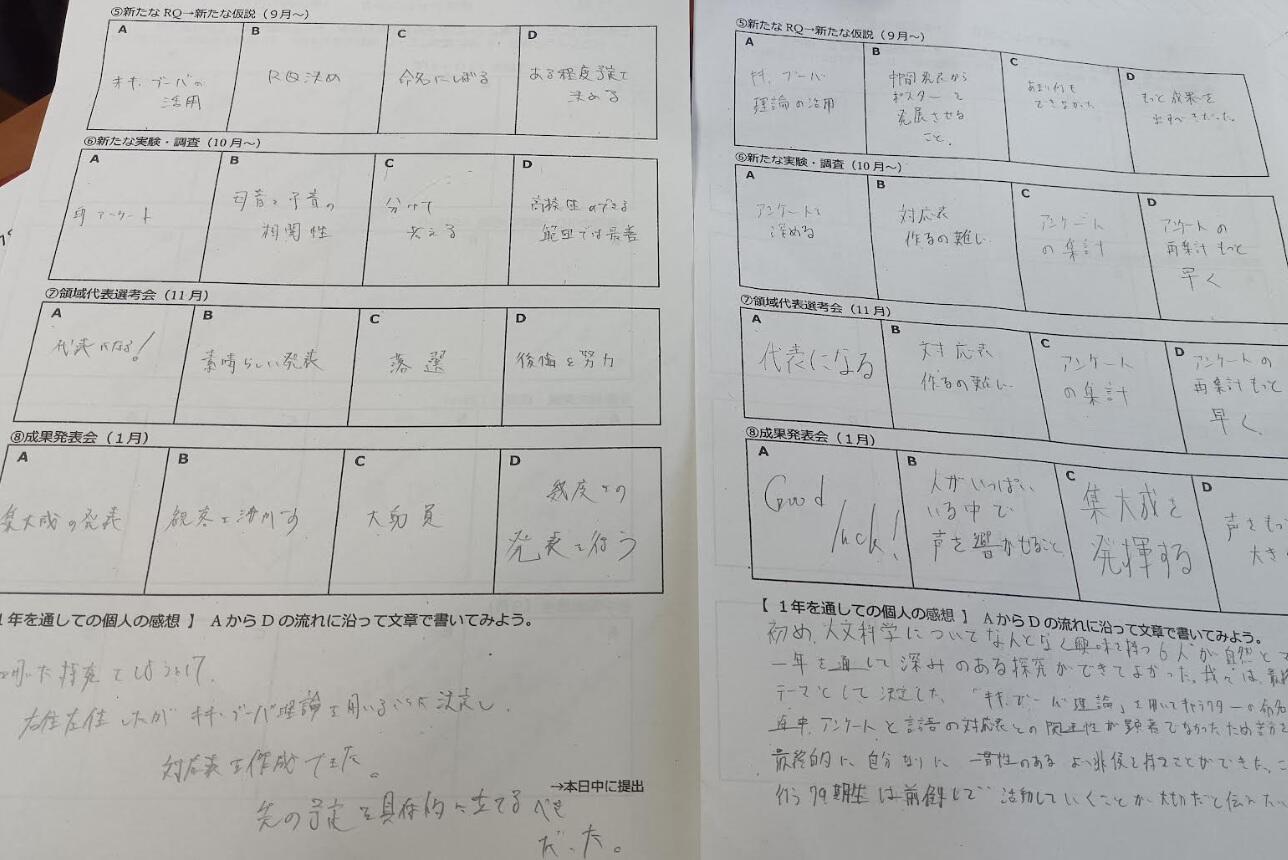 ⑤新たなRQ→新たな仮説（9月～）
A
B
C
D
キキ、ブーバの
活用
RQ決め
命名にしぼる
ある程度予定を
決める
⑥新たな実験・調査（10月～）
A
B
C
D
再アンケート
母音と子音の
相関性
分けて
考える
高校生のできる
範囲では最善
⑦領域代表選考会（11月）
A
B
C
D
代表になる！
素晴らしい発表
落選
後悔と努力
⑧成果発表会（1月）
A
B
C
D
集大成の発表
経験を活かす
大動員
幾度との
発表を行う
1年を通しての個人の感想 】 AからDの流れに沿って文章で書いてみよう。
右往左往したがキキ、ブーバ理論を用いることに決定し、
対応表を作成できた。
→本日中に提出
先の予定を具体的に立てるべき
だった。
⑤新たなRQ→新たな仮説（9月～）
A
B
C
D
キキ、ブーバ
理論の活用
中間発表から
ポスターを
発展させる
こと。
あまり何も
できなかった
もっと成果を
出すべきだった。
⑥新たな実験・調査（10月～）
A
B
C
D
アンケートを
深める
対応表
作るの難しい
アンケート
の集計
アンケートの
再集計もっと
早く
⑦領域代表選考会（11月）
A
B
C
D
代表になる
対応表
作るの難しい
アンケート
の集計
アンケートの
再集計もっと
早く
⑧成果発表会（1月）
A
B
C
D
Good
luck!
人がいっぱい
いる中で
声を響かせること
集大成を
発揮する
声をもっ
大き
【 1年を通しての個人の感想 】 AからDの流れに沿って文章で書いてみよう。
初め、人文科学についてなんとなく興味を持つ6人が自然と
一年を通して深みのある探究ができてよかった。我々は、最終
テーマとして決定した、「キキ、ブーバ理論」を用いてキャラクターの命名
途中、アンケートと言語の対応表との関連性が顕著でなかったため
最終的に自分なりに一貫性のある を持つことができた。こ
79期生は前倒しで活動していくことが大切だと伝えたい